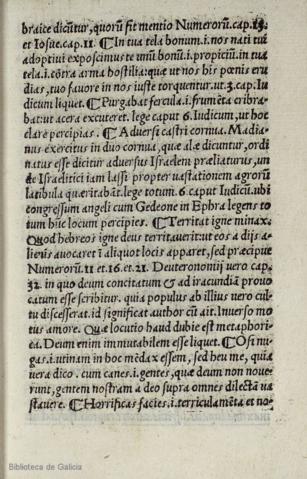 braice dicũtur, quorũ fit mentio Numerorũ.cap.13.
et Iosue.cap.11. ¶In tua tela bonum.i.nos nati tui
adoptiui exposcimus te unũ bonũ.i.propiciũ.in tua
tela.i.cõtra arma hostilia:quæ ut nos his pœnis eru
dias, tuo fauore in nos iuste torquentur.ut.3.cap.Iu
dicum liquet. ¶Purgabat fercula.i.frumẽta cribra-
bat:ut acera excuteret. lege caput 6. Iudicum, ut hoc
clare percipias. ¶Aduersi castri cornua. Madia-
nus exercitus in duo cornua, quæ alæ dicuntur, ordi
natus esse dicitur aduersus Israelem præliaturus, un
de Israelitici iam lassi propter uastationem agrorũ
latibula quæritabãt.lege totum.6.caput Iudicũ.ubi
congressum angeli cum Gedeone in Ephra legens to
tum hũc locum percipies. ¶Territat igne minax.
Quod hebreos igne deus territauerit:ut eos a dijs a-
lienis auocaret i aliquot locis apparet, sed præcipue
Numerorũ.11 et.16.et.21. Deuteronomij vero cap.
32. in quo deum concitatum & ad iracundiã prouo
catum esse scribitur. quia populus ab illius vero cul-
tu discesserat.id significat author cũ ait.Inuerso mo
tus amore. Quæ locutio haud dubie est metaphori-
ca. Deum enim immutabilem esse liquet. ¶O si nu-
gas.i.utinam in hoc mẽdax essem, sed heu me, quia
vera dico. cum canes.i.gentes, quæ deum non noue-
runt, gentem nostram a deo supra omnes dilectã va
stauere. ¶Horrificas facies.i.terriculamẽta et no-
Biblioteca de Galicia